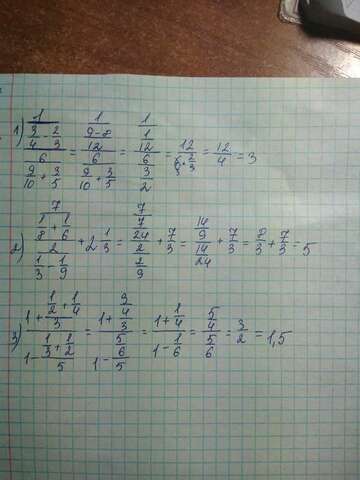 1) \frac{\frac{1}{\frac{3}{4}-\frac{2}{3}}}{\frac{6}{\frac{9}{10}+\frac{3}{5}}} = \frac{\frac{1}{\frac{9-8}{12}}}{\frac{6}{\frac{9}{10}+\frac{3}{5}}} = \frac{\frac{1}{\frac{1}{12}}}{\frac{6}{\frac{3}{2}}} = \frac{12}{6 \cdot \frac{2}{3}} = \frac{12}{4} = 3
2) \frac{\frac{7}{\frac{1}{8}+\frac{1}{6}}}{\frac{2}{\frac{1}{3}-\frac{1}{9}}} + 2\frac{1}{3} = \frac{\frac{7}{\frac{7}{24}}}{\frac{2}{\frac{2}{9}}} + \frac{7}{3} = \frac{\frac{14}{9}}{\frac{14}{24}} + \frac{7}{3} = \frac{8}{3} + \frac{7}{3} = 5
3) \frac{1+\frac{\frac{1}{2}+\frac{1}{4}}{3}}{1-\frac{\frac{1}{3}+\frac{1}{2}}{5}} = \frac{1+\frac{\frac{3}{4}}{3}}{1-\frac{\frac{5}{6}}{5}} = \frac{1+\frac{1}{4}}{1-\frac{1}{6}} = \frac{\frac{5}{4}}{\frac{5}{6}} = \frac{3}{2} = 1,5